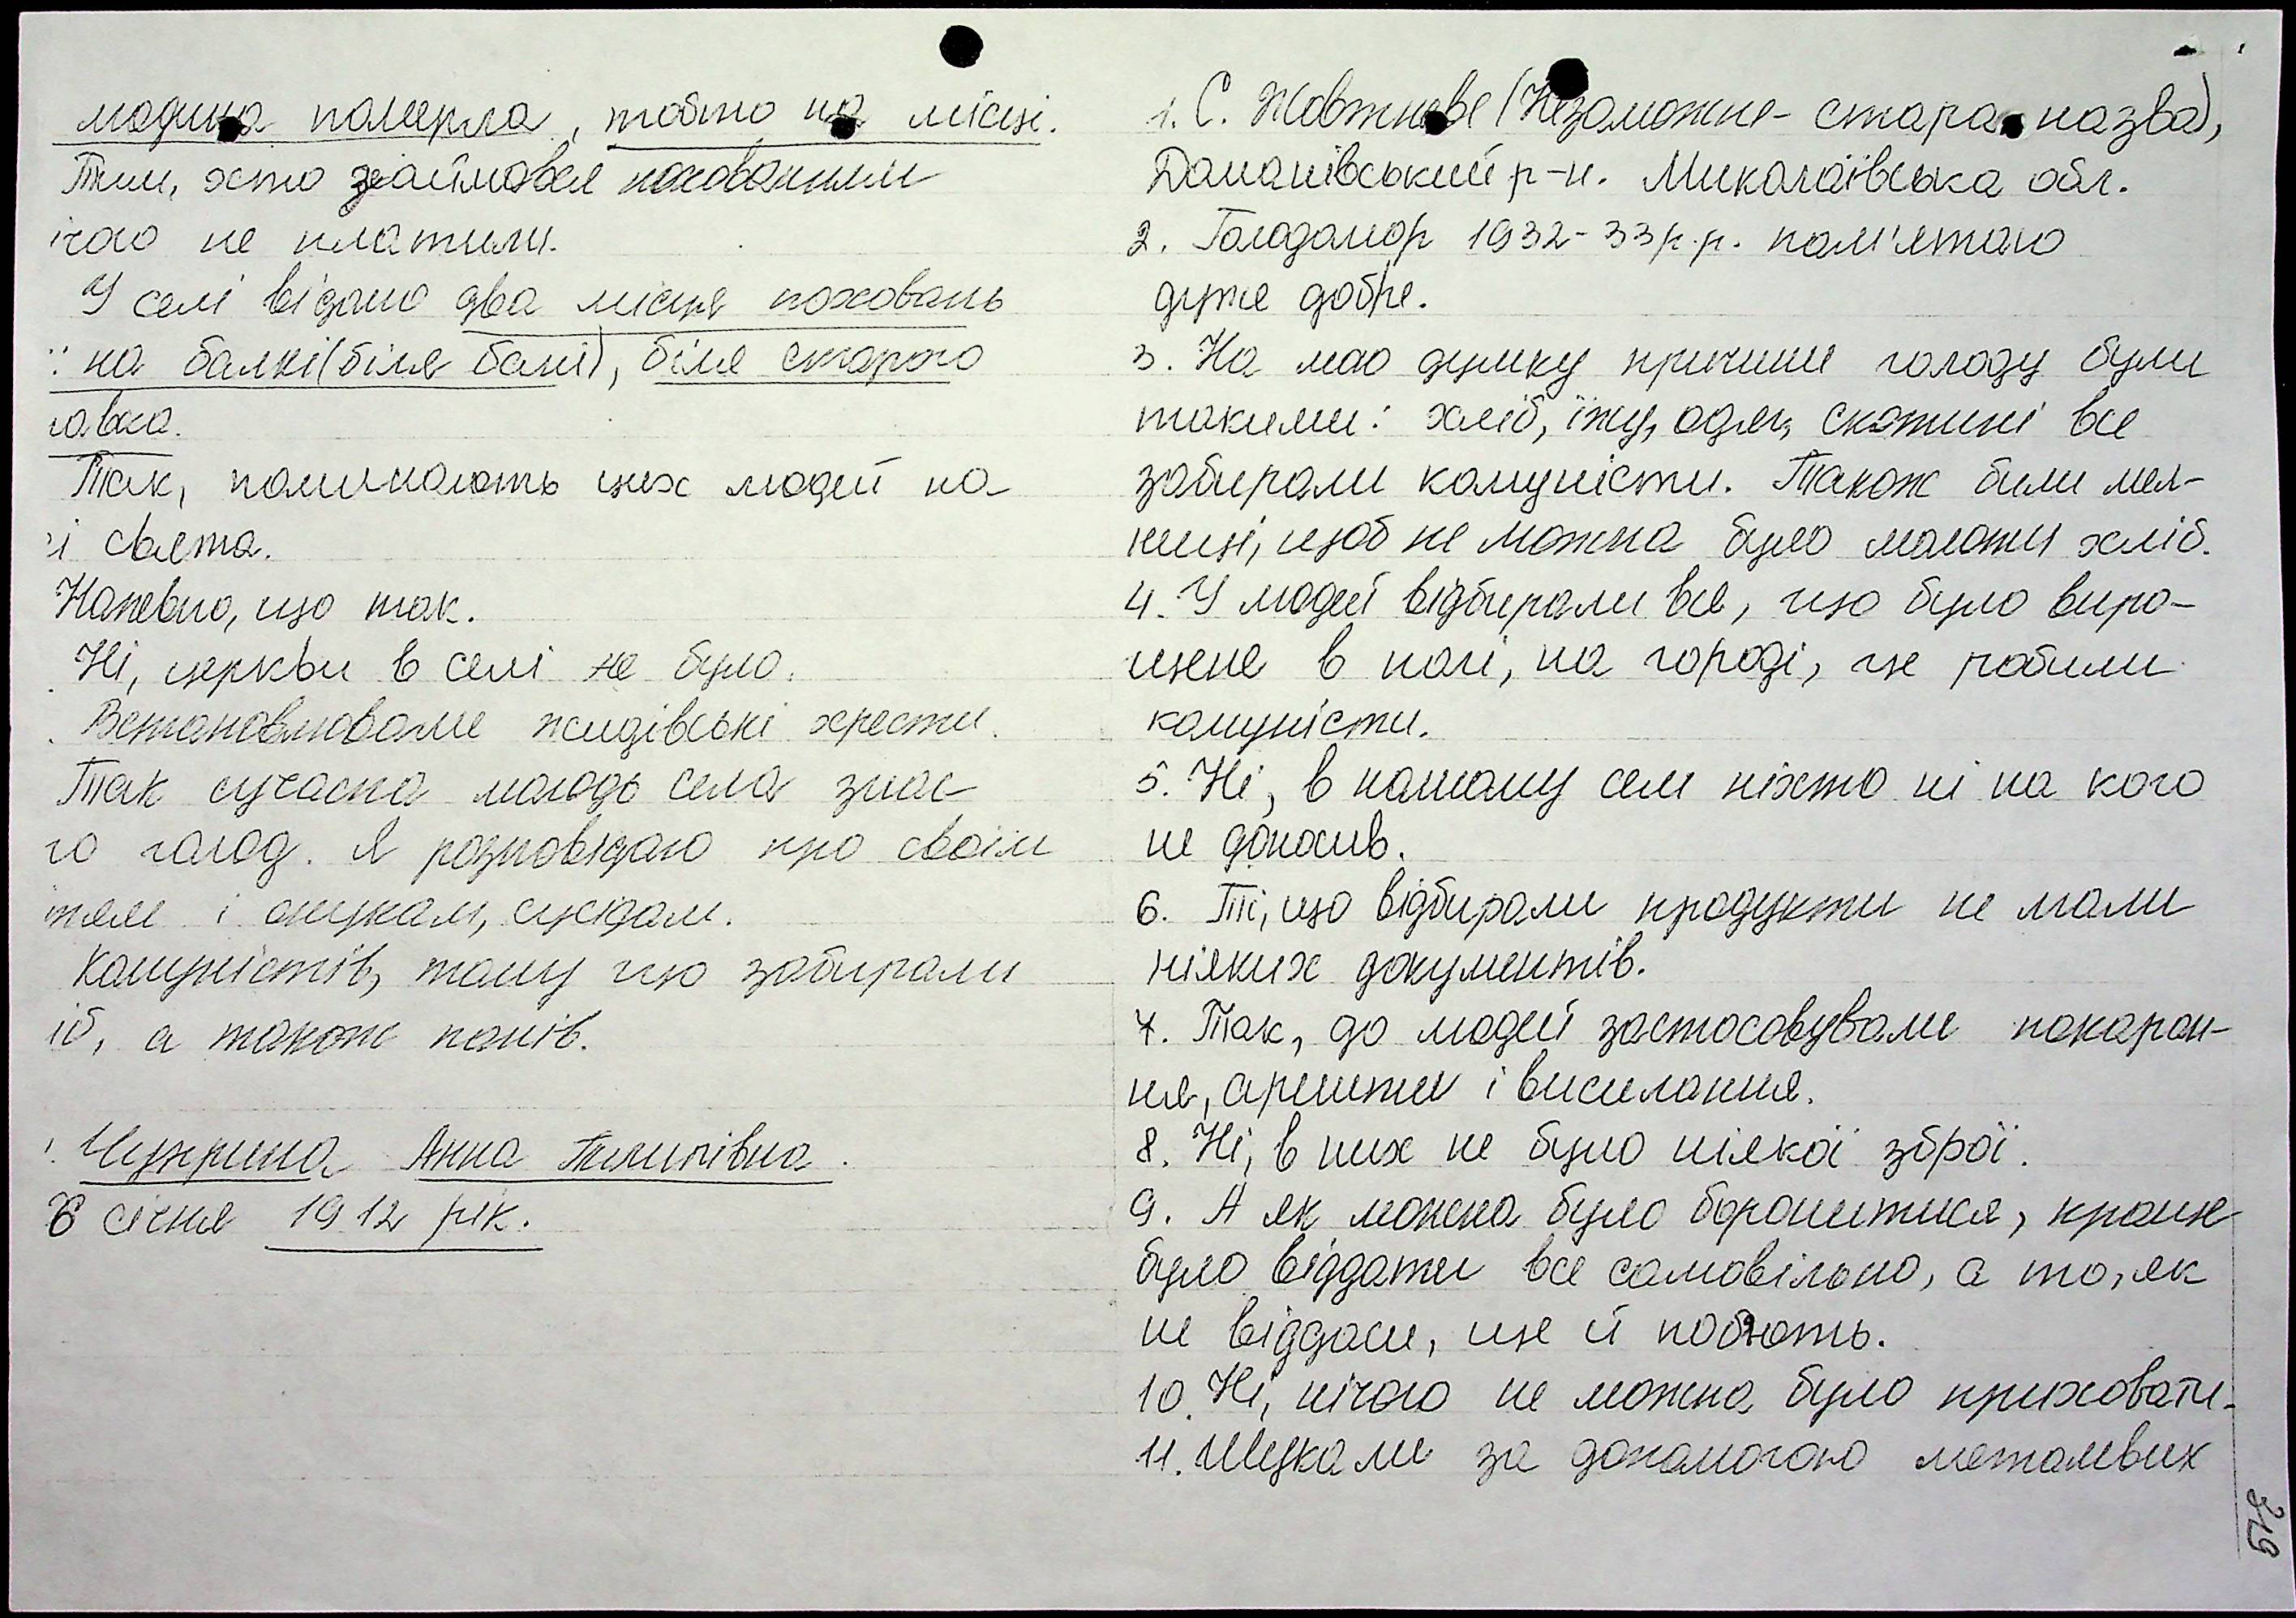 людина померла, тобто на місці.
Тим, хто займався похованням
ічого не платили.
У селі відомо два місця поховань
: на балкі (біля бані), біля старого
тавка.
Так, поминають цих людей на
і свята.
Напевно, що так.
Ні, церкви в селі не було.
Встановлювали жидівські хрести.
Так сучасна молодь села знає
го голод. Я розповідаю про своїм
тям і онукам, сусідам.
Комуністів, тому що забирали
іб, а також панів.
Анна Пилипівна.
6 січня 1912 рік.
1. С. Жовтневе (Незаможне - стара назва),
Доманівський р-н. Миколаївська обл.
2. Голодомор 1932-33 р.р. пам'ятаю
дуже добре.
3. На мою думку причини голоду були
такими: хліб, їжу, одяг, скотині все
забирали комуністи. Також били мел-
ниці, щоб не можна було молоти хліб.
4. У людей відбирали все, що було виро-
щене в полі, на городі, це робили
комуністи.
5. Ні, в нашому селі ніхто ні на кого
не доносив.
6. Ті, що відбирали продукти не мали
ніяких документів.
7. Так, до людей застосовували покаран-
ня, арешти і висилання.
8. Ні, в них не було ніякої зброї.
9. А як можна було боронитися, краще
було віддати все самовільно, а то, як
не віддаси, ще й поб'ють.
10. Ні, нічого не можна було приховати.
11. Шукали за допомогою металевих
319